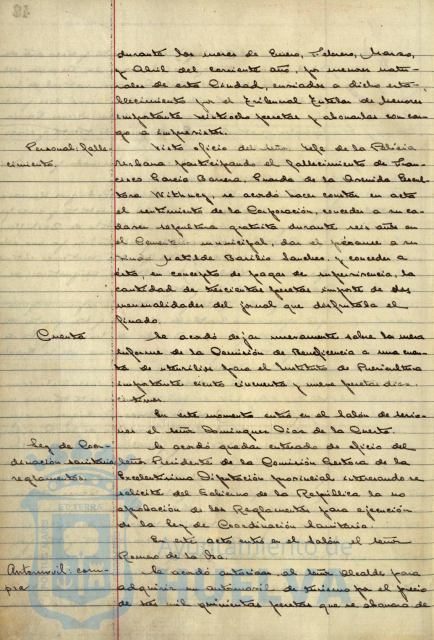 durante los meses de Enero, Febrero, Marzo,
y Abril del corriente año, por menores natu-
rales de esta Ciudad, enviados a dicho esta-
blecimiento por el Tribunal Tutelar de Menores
importante veintiocho pesetas y abonarlas con car-
go a imprevistos.
Personal: falle-
cimiento.
Visto oficio del señor Jefe de la Policia
urbana participando el fallecimiento de Fran-
cisco Garcia Barrera, Guarda de la Avenida Escul-
tora Withney, se acordó hacer constar en acta
el sentimiento de la Corporación, conceder a su ca-
daver sepultura gratuita durante seis años en
el Cementerio municipal, dar el pésame a su
viuda Matilde Basilio Sanchez, y conceder a
ésta, en concepto de pagas de supervivencia, la
cantidad de trescientas pesetas importe de dos
mensualidades del jornal que disfrutaba el
finado.
Cuenta
Se acordó dejar nuevamente sobre la mesa
informe de la Comisión de Beneficencia a una cuen-
ta de utensilios para el Instituto de Puericultura
importante ciento cincuenta y nueve pesetas diez
centimos.
En este momento entra en el Salón de sesio-
nes el señor Dominguez Diaz de la Cuesta.
Ley de Coor-
dinación sanitaria
reglamentos.
Se acordó quedar enterado de oficio del
señor Presidente de la Comisión Gestora de la
Excelentisima Diputación provincial interesando se
solicite del Gobierno de la República la no
aprobación de los Reglamentos para ejecución
de la ley de Coordinación Sanitaria.
En este acto entra en el Salón el señor
Romero de la
Automóvil: com-
pra
Se acordó autorizar al señor Alcalde para
adquirir un automovil de turismo por el precio
de tres mil quinientas pesetas que se abonará de